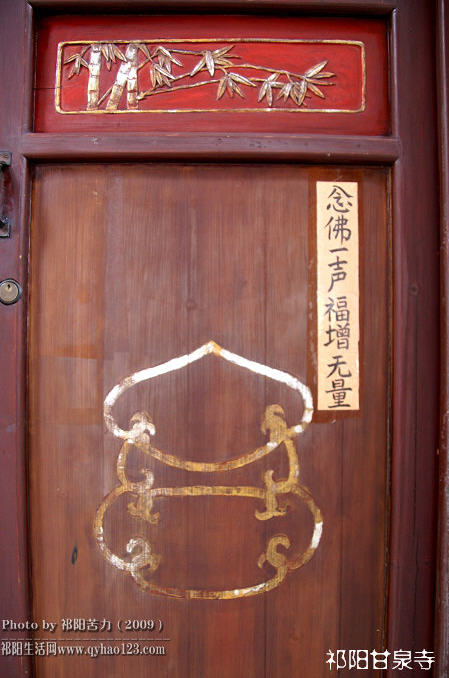 念佛一声福增无量
Photo by 祁阳苦力（2009）
祁阳生活网www.qyhao123.com
祁阳甘泉寺